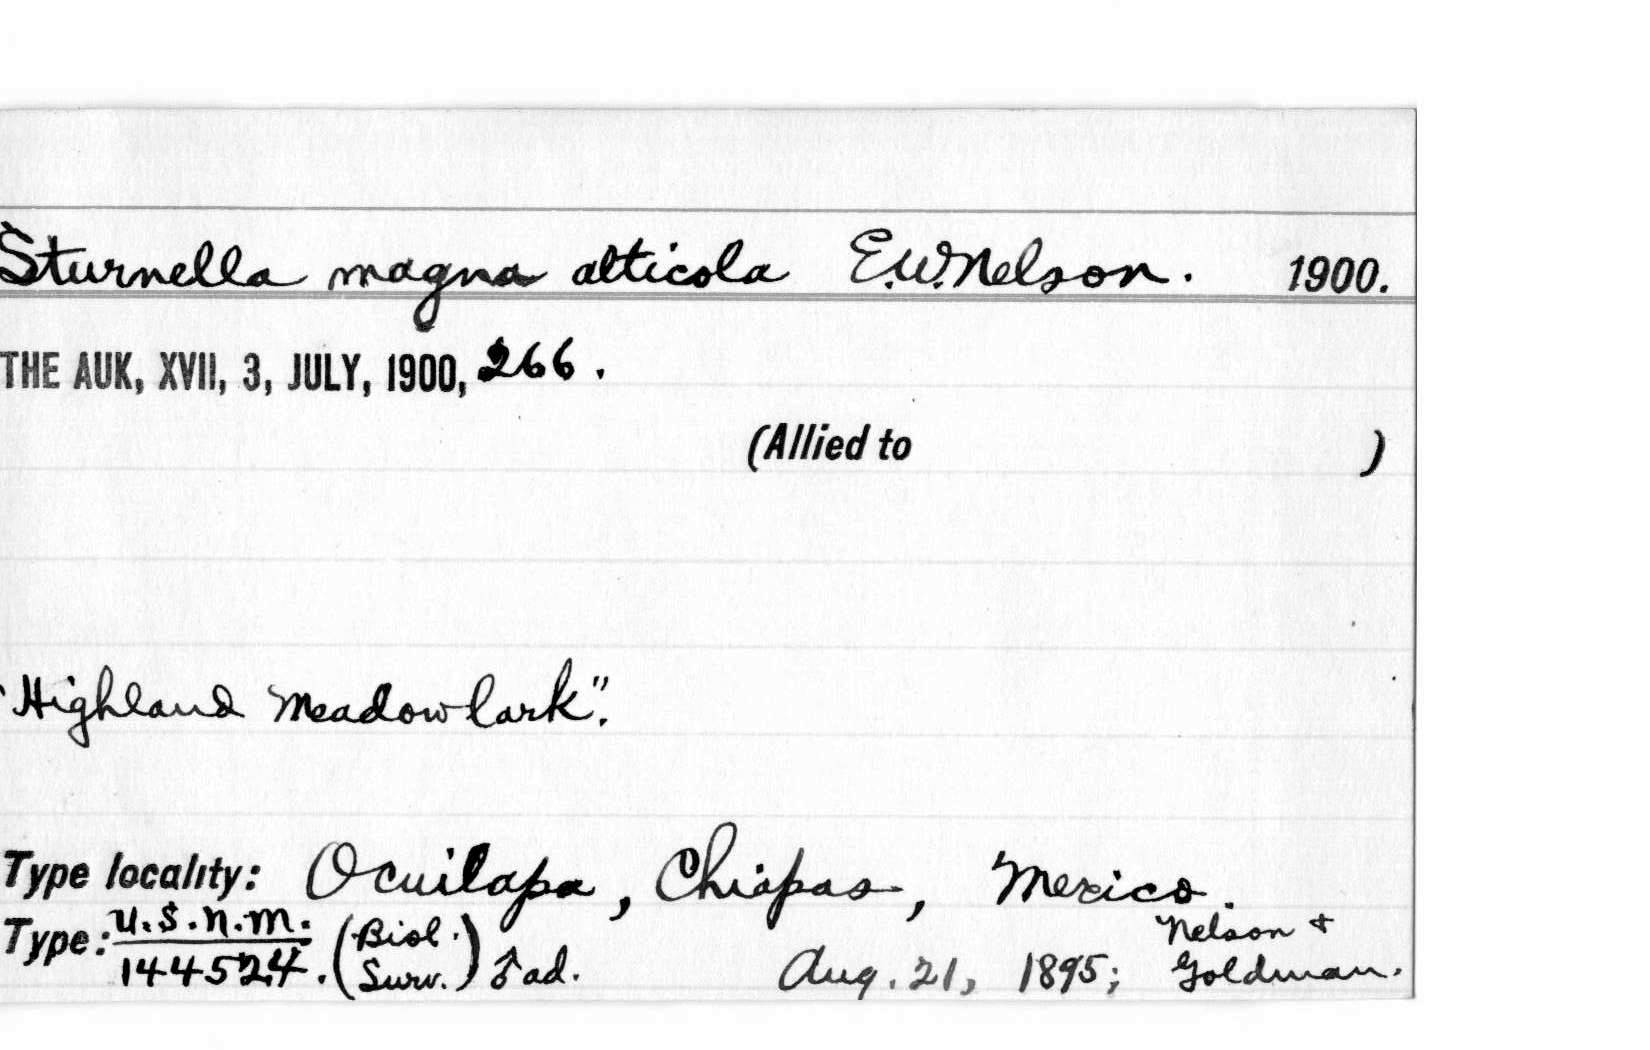 Sturnella magna alticola E.W. Nelson. 1900.
THE AUK, XVII, 3, JULY, 1900, 266.
(Allied to )
"Highland Meadowlark".
Type locality: Ocuilapa, Chiapas, Mexico.
Type: U.S.N.M. 144524. (Biol. Surv.) ♂ ad. Aug. 21, 1895; Nelson & Goldman.